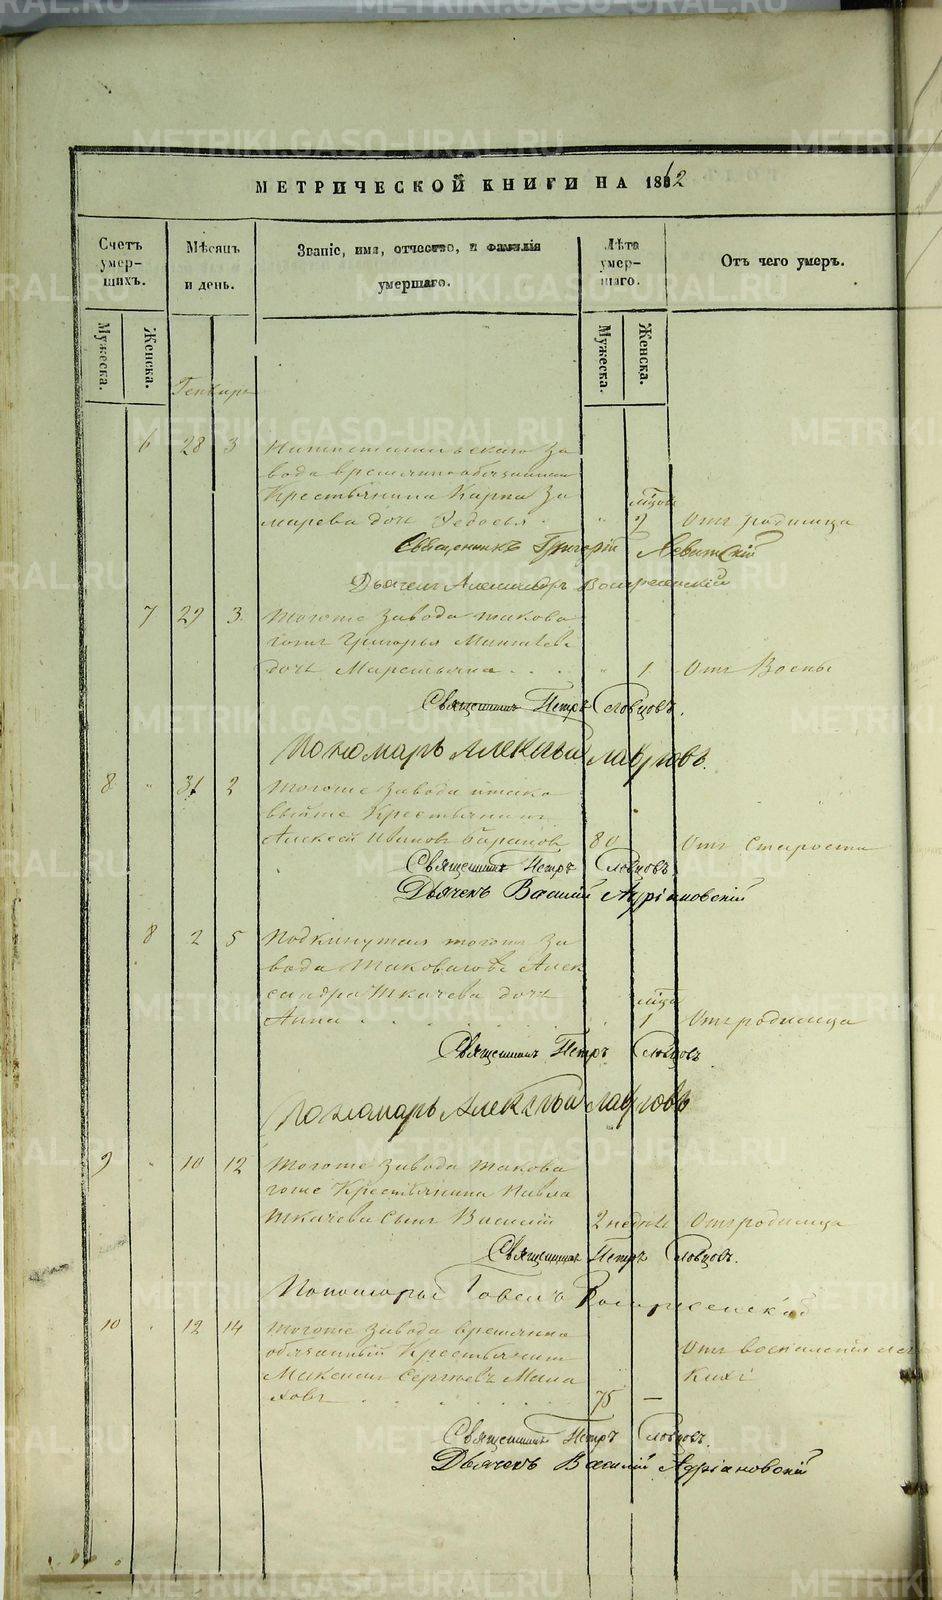 МЕТРИЧЕСКОЙ КНИГИ НА 1862
Счетъ умер-шихъ.
Мѣсяцъ и день.
Званіе, имя, отчество, и фамилія умершаго.
Лѣта умер-шаго.
Отъ чего умеръ.
Мужеска.
Женска.
Мужеска.
Женска.
Генваря
6 28 3 завода временно обязаннаго
Крестьянина Карпа За
марева дочь Федосья. " 2 Отъ родимца
Священникъ Григорій Левитскій
Дьячекъ Александръ Воскресенскій
7 29 3 Тогоже завода такова
гожъ Григорья
дочь Маремьяна " 1 Отъ Воспы
Священникъ Петръ Словцовъ.
Пономарь Алексѣй Лавровъ.
8 " 31 2 Тогоже завода и тако
выйже Крестьянинъ
Алексей Ивановъ Баранов 80 Отъ Старости
Священникъ Петръ Словцовъ.
Дьячекъ Василій Адріановскій
8 2 5 Подкинутая тогоже за
вода таковагожъ Алек
сандра Ткачева дочь
Анна 1 Отъ родимца
Священникъ Петръ Словцовъ
Пономарь Алексѣй Лавровъ
9 " 10 12 Тогоже завода такова
гоже Крестьянина Павла
Ткачева сынъ Василій 2 недѣли Отъ родимца
Священникъ Петръ Словцовъ.
Пономарь Воскресенской
10 " 12 14 Тогоже завода временно
обязанный Крестьянинъ
Максимъ Сергѣевъ Мала
ховъ 75 — Отъ воспаления лег
кихъ
Священникъ Петръ Словцовъ.
Дьячекъ Василій Адріановскій
METRIKI.GASO-URAL.RU